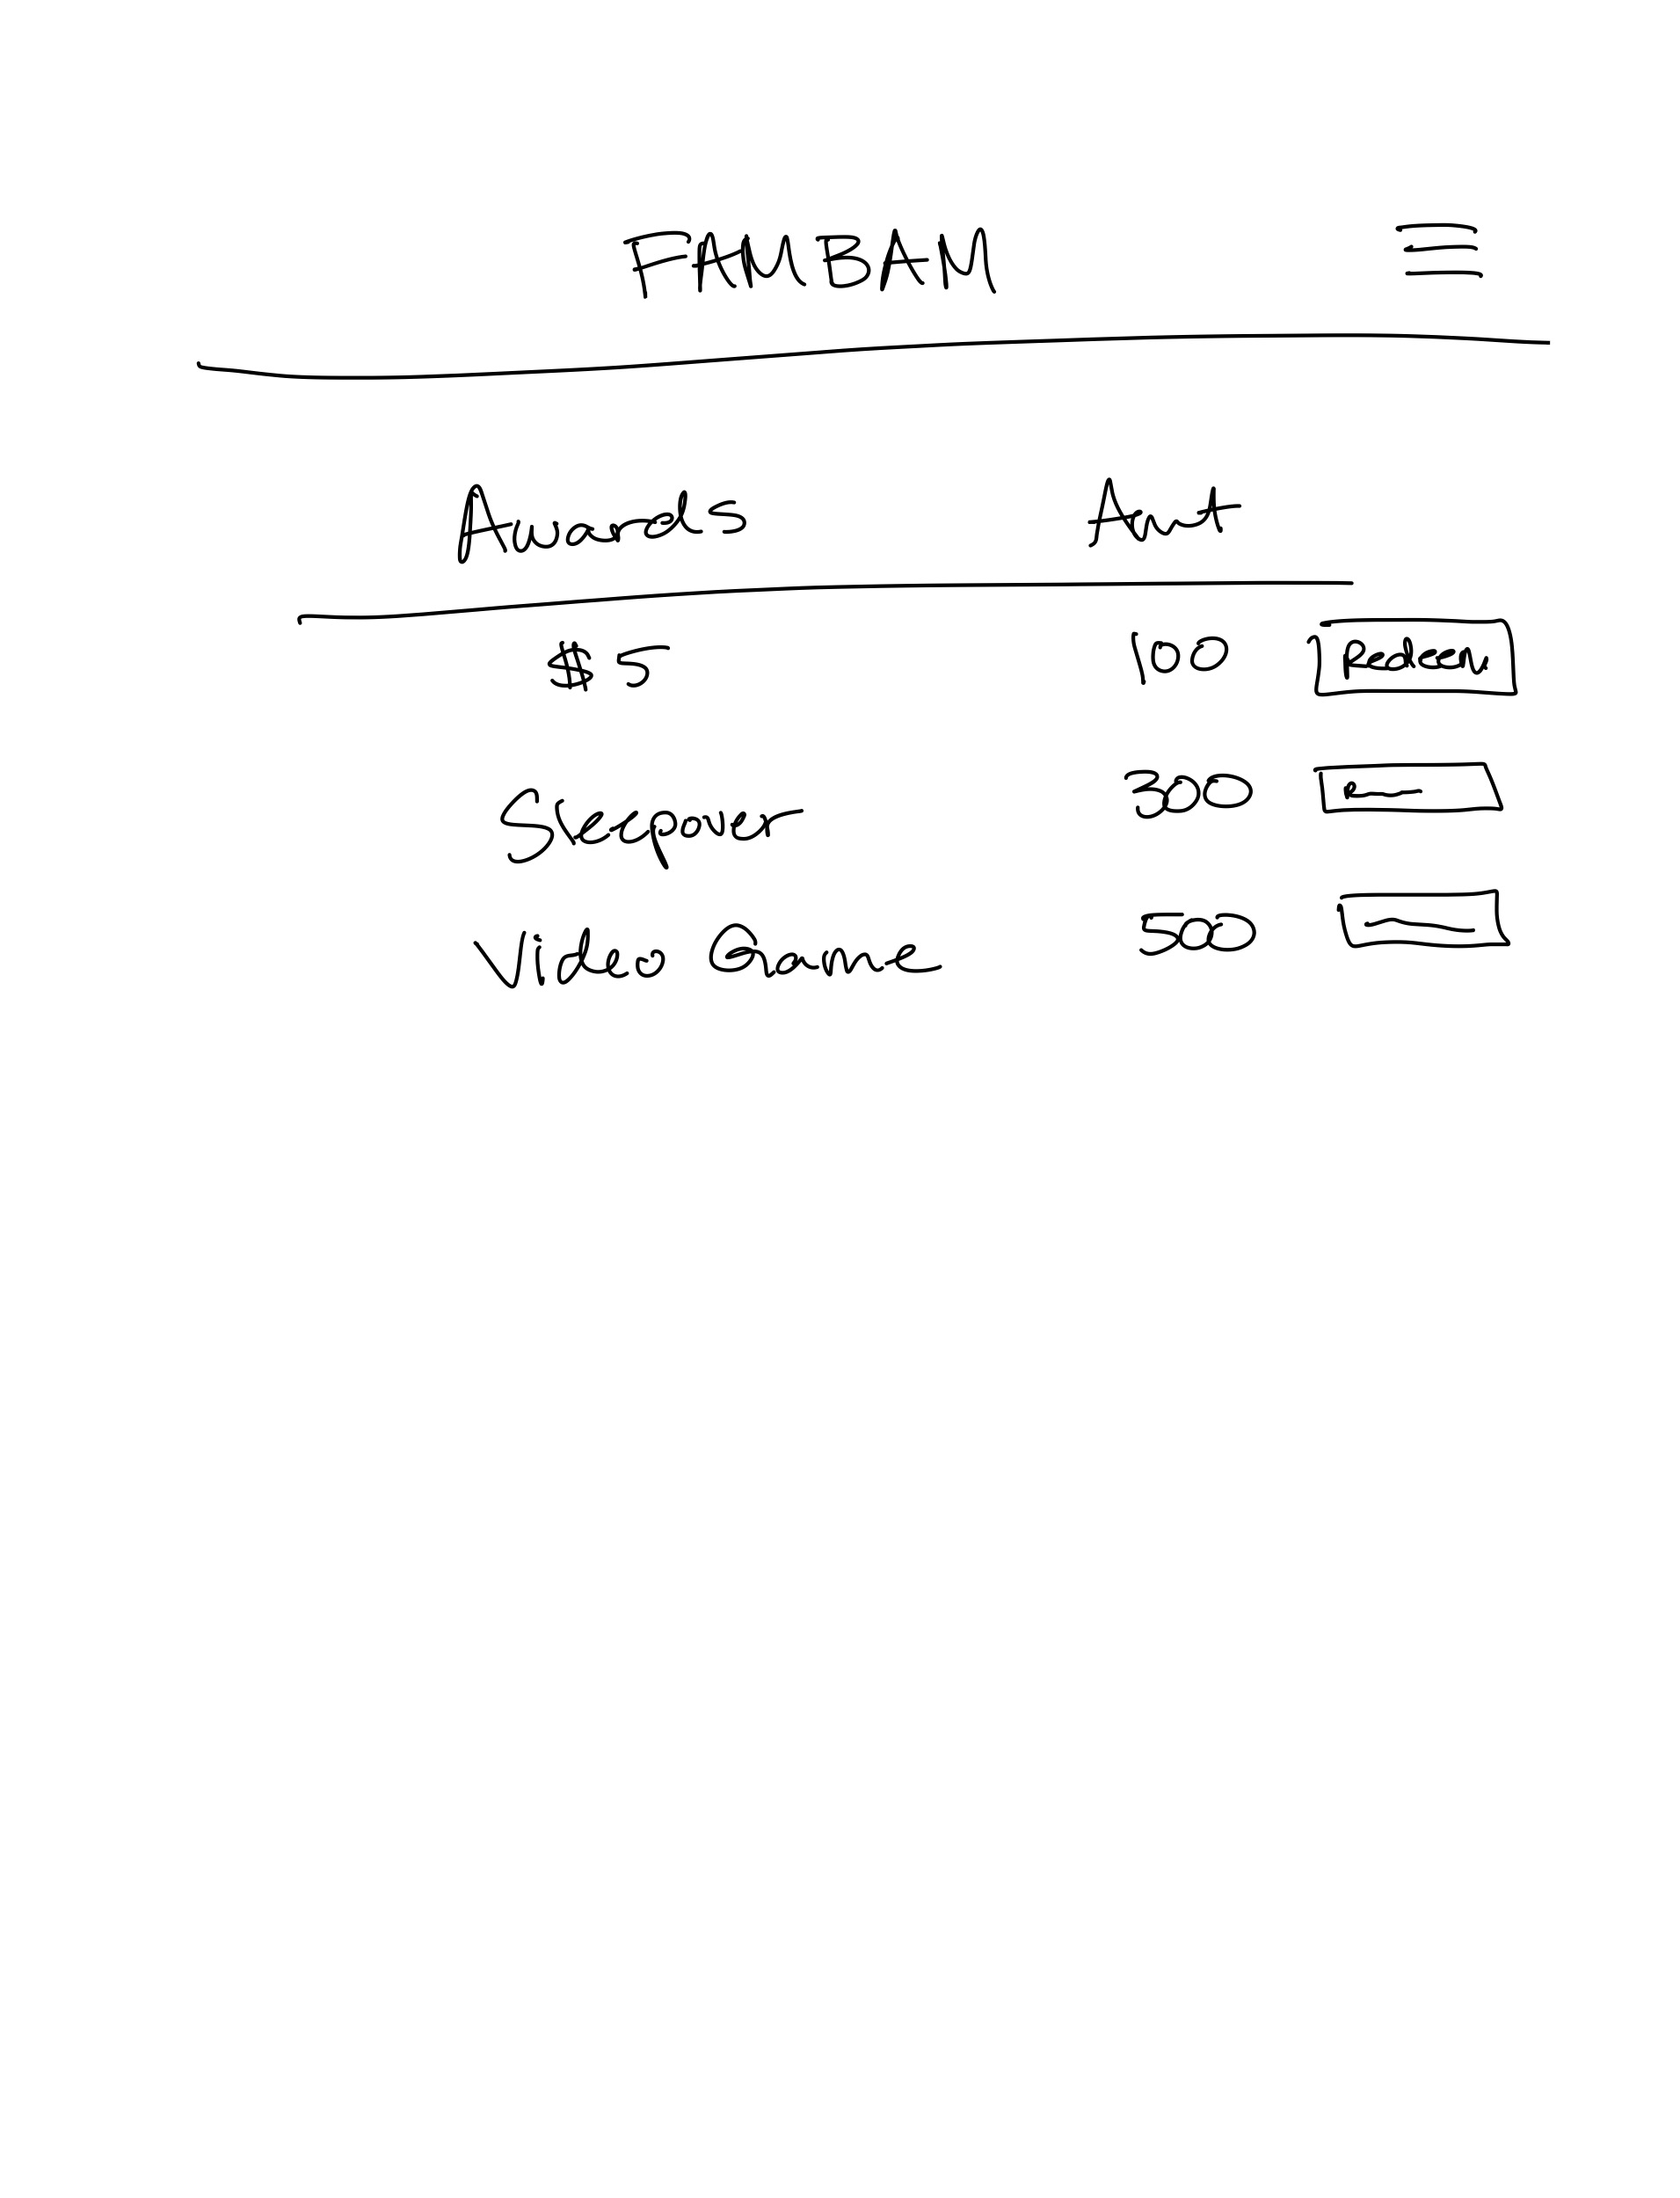 FAMBAM
Awards Amt
$5 100 Redeem
Sleepover 300
Video Game 500